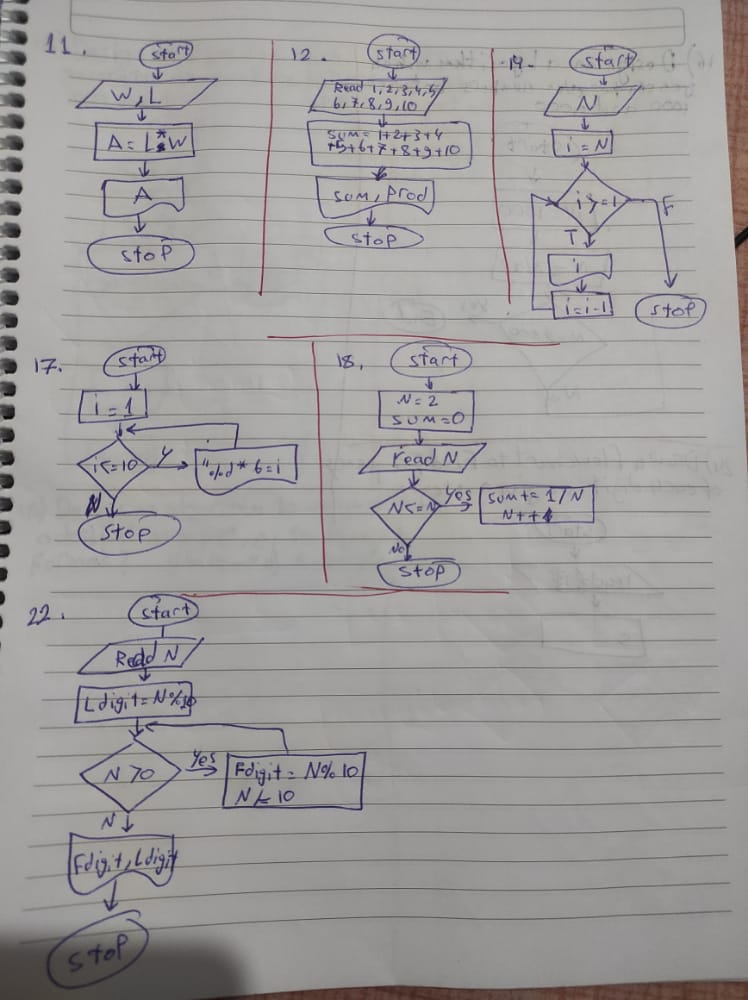 11.
start
W, L
A = L * W
A
stop
12.
start
Read 1,2,3,4,5
6,7,8,9,10
SUM = 1+2+3+4
+5+6+7+8+9+10
SUM, Prod
stop
19.
start
N
i = N
i >= 1
F
T
i
i = i-1
stop
17.
start
i = 1
i <= 10
Y
N
stop
18.
start
N = 2
SUM = 0
read N
N <= N
Yes
SUM += 1/N
N++
No
stop
22.
start
Read N
Ldigit = N%10
N > 0
Yes
Fdigit = N% 10
10
N
Fdigit, Ldigit
stop